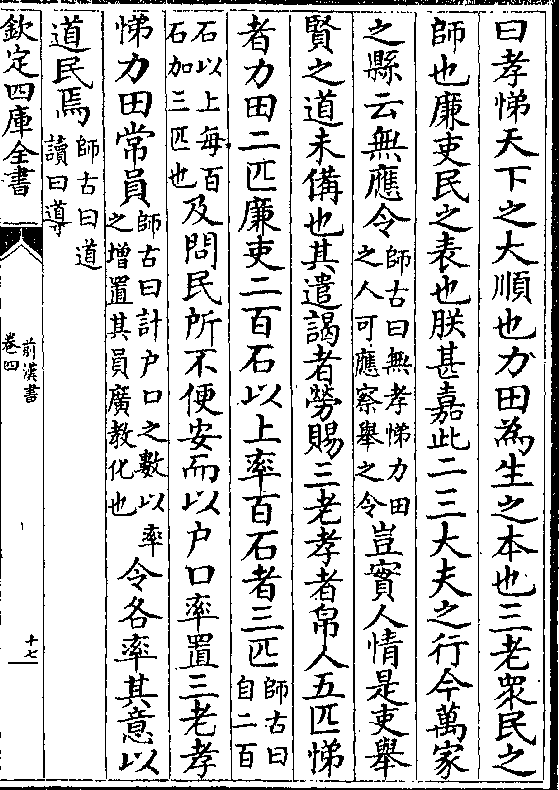 曰孝悌天下之大順也力田為生之本也三老衆民之
師也廉吏民之表也朕甚嘉此二三大夫之行今萬家
之縣云無應令師古曰無孝悌力田之人可應察舉之令豈實人情是吏舉
賢之道未備也其遣謁者勞賜三老孝者帛人五匹悌
者力田二匹廉吏二百石以上率百石者三匹師古曰自二百
石以上每百石加三匹也及問民所不便安而以户口率置三老孝
悌力田常員師古曰計户口之數以率之增置其員廣教化也令各率其意以
道民焉師古曰道讀曰導
欽定四庫全書
前漢書
卷四
十七